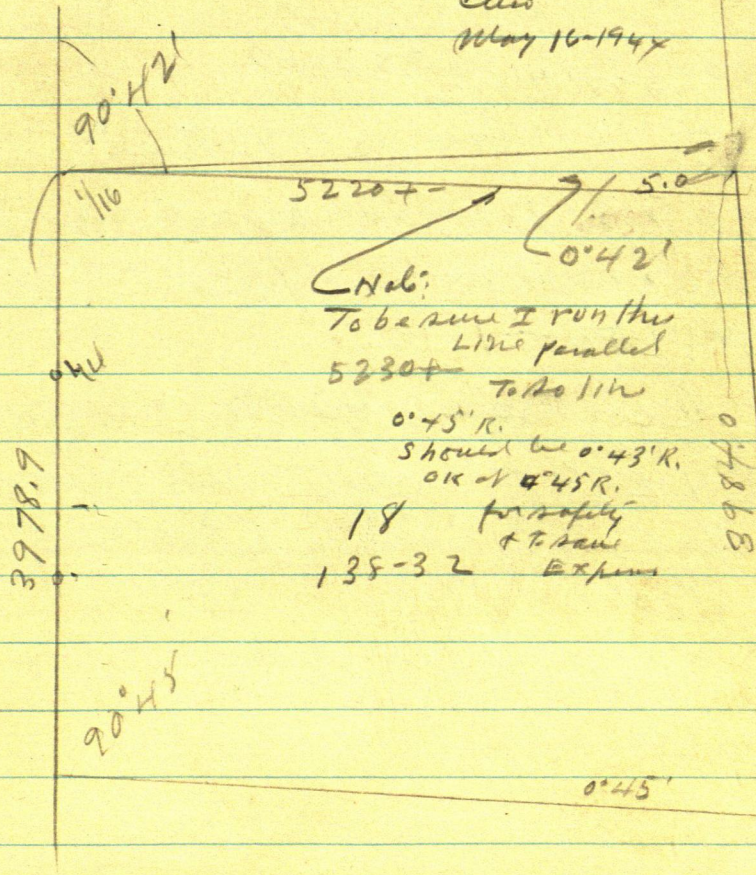 May 16-194
90°42'
1/16
5220+-
5.0
0°42'
Note:
To be sure I run this
Line parallel
5230+
To so line
0°45'R.
should be 0°43'R.
OK at 0°45R.
18
for safety
+ to save
138-32
Expense
3978.9
90°45'
0°45'